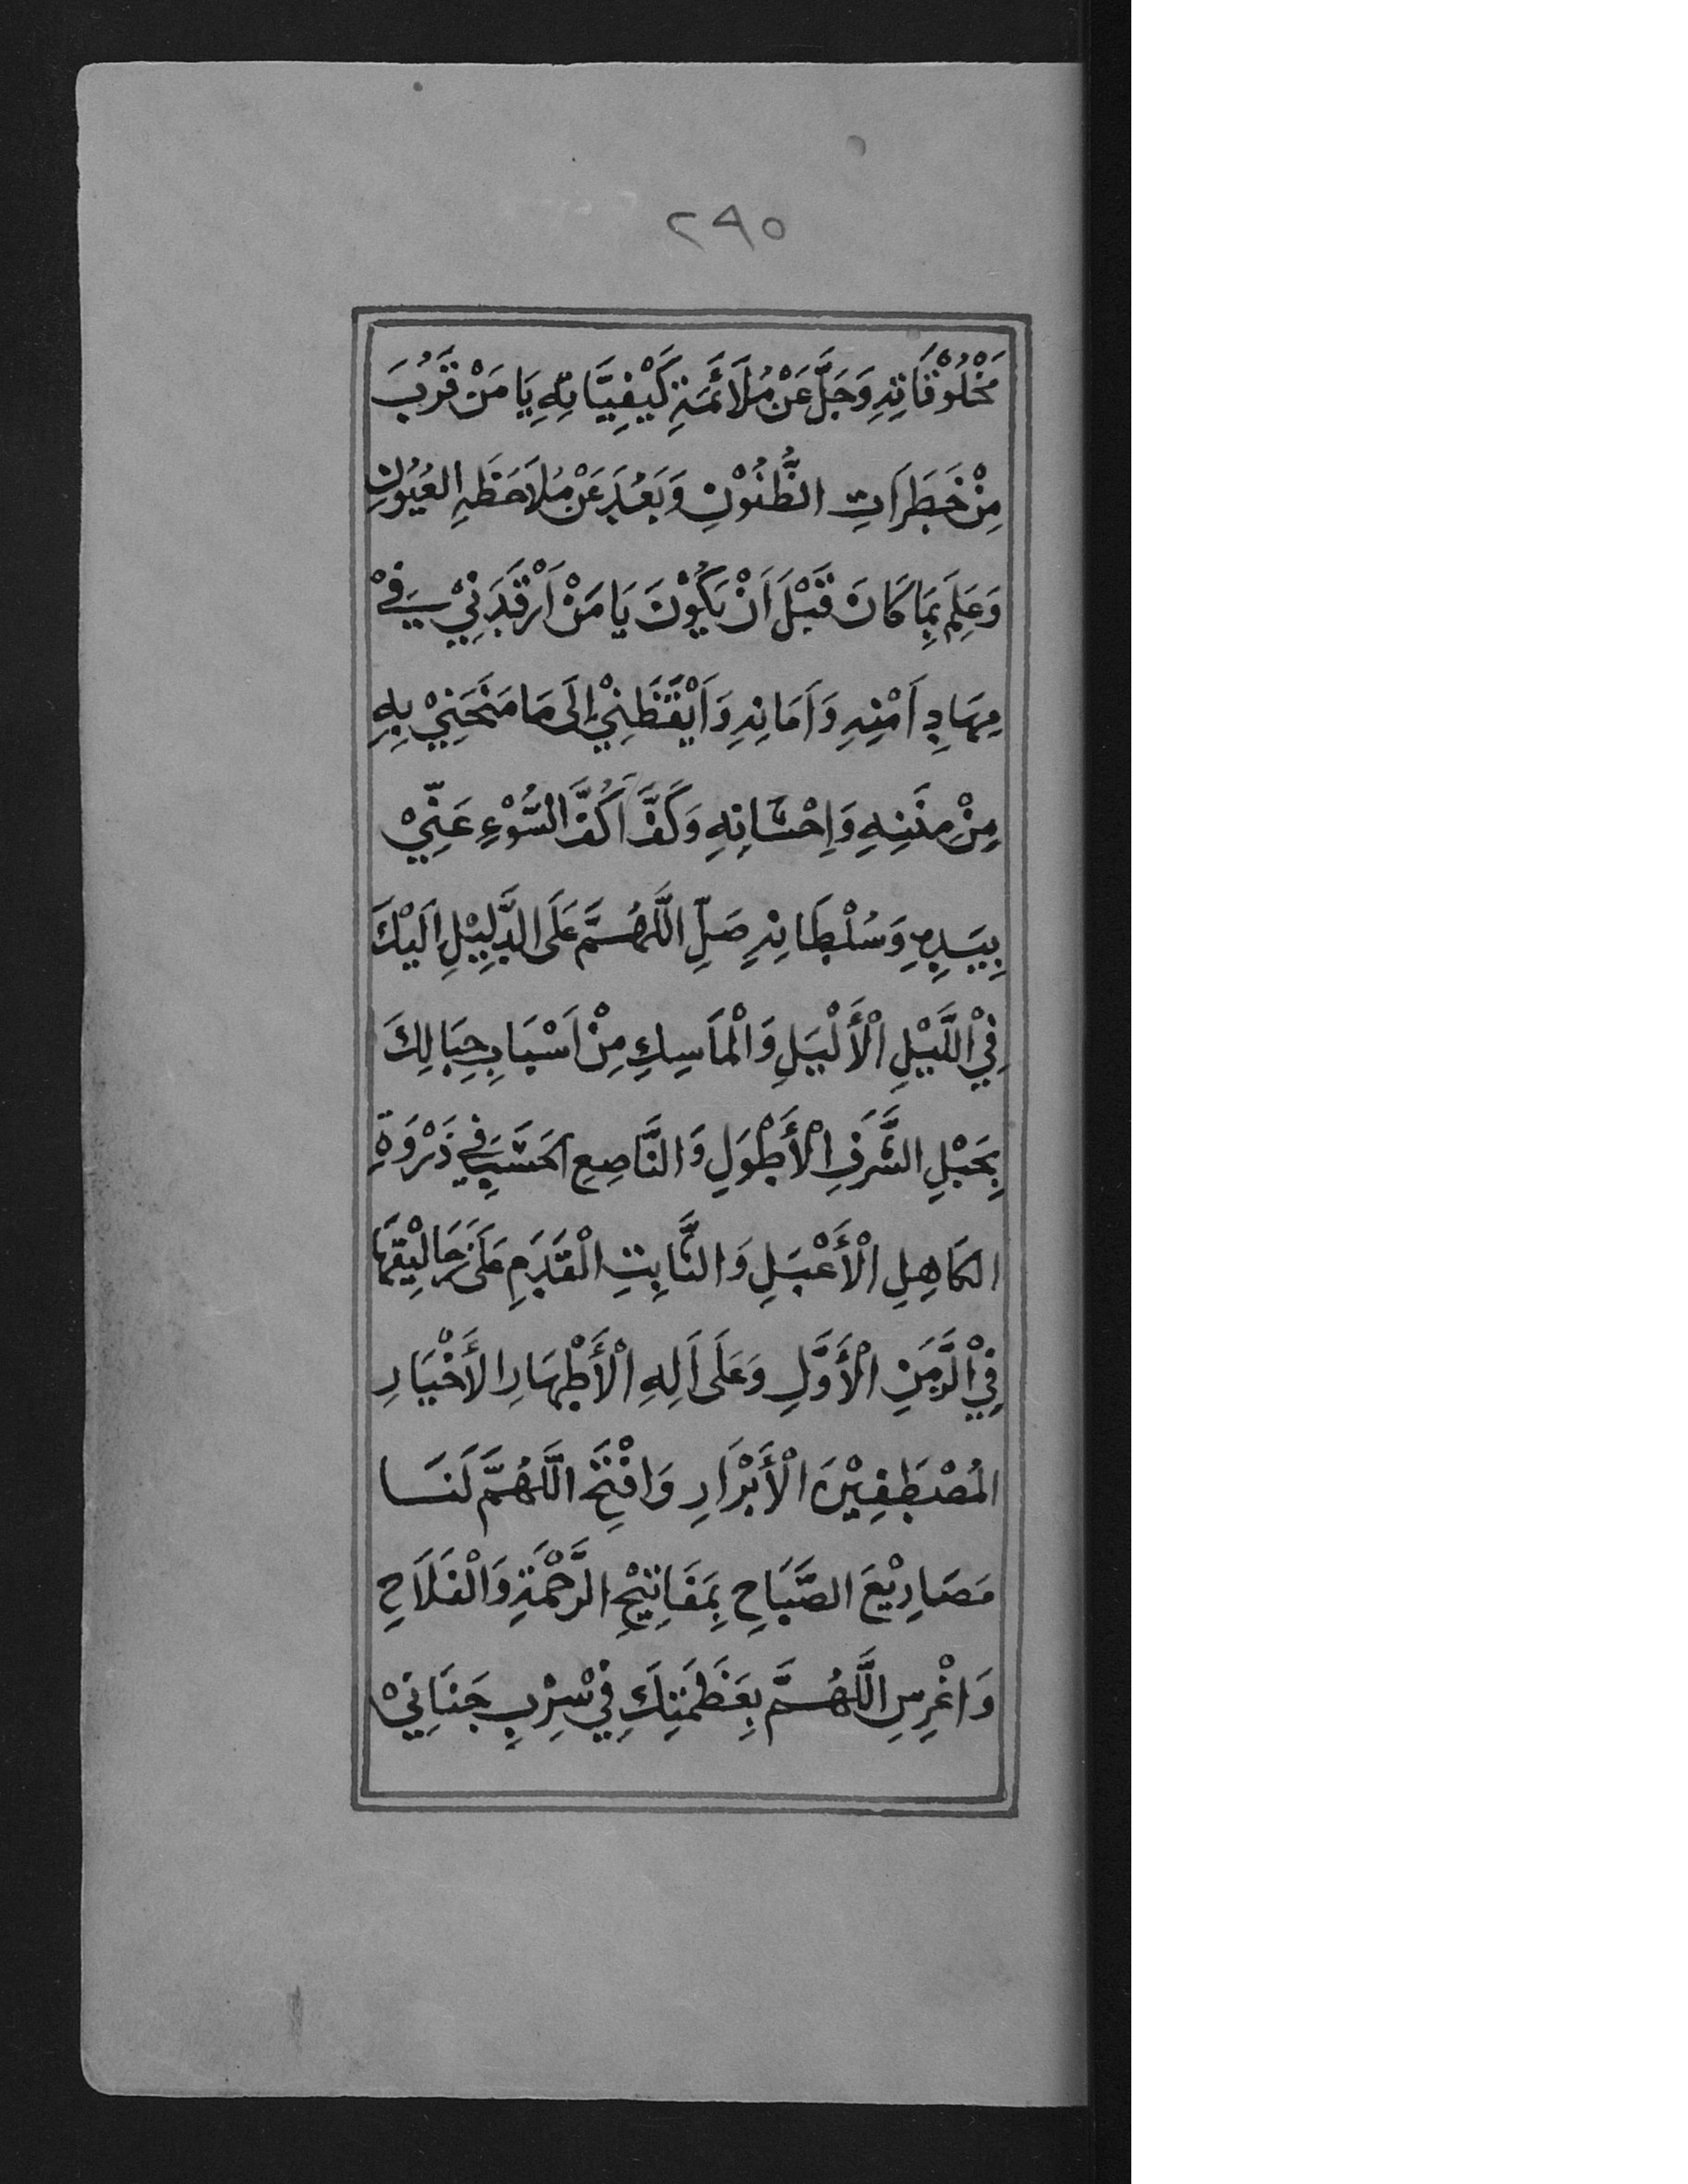 ٢٩٥
مَخْلُوْقَاتِهِ وَجَلَّ عَنْ مُلَائَمَةِ كَيْفِيَّاتِهِ يَا مَنْ قَرُبَ
مِنْ خَطَرَاتِ الظُّنُوْنِ وَبَعُدَ عَنْ مُلَاحَظَةِ العُيُوْنِ
وَعَلِمَ بِمَا كَانَ قَبْلَ اَنْ يَكُوْنَ يَا مَنْ اَرْقَدَنِيْ فِيْ
مِهَادِ اَمْنِهِ وَاَمَانِهِ وَاَيْقَظَنِيْ اِلَى مَا مَنَحَنِيْ بِهِ
مِنْ مِنَنِهِ وَاِحْسَانِهِ وَكَفَّ اَكُفَّ السُّوْءِ عَنِّيْ
بِيَدِهِ وَسُلْطَانِهِ صَلِّ اللَّهُمَّ عَلَى الدَّلِيْلِ اِلَيْكَ
فِيْ اللَّيْلِ الْأَلْيَلِ وَالْمَاسِكِ مِنْ اَسْبَابِ حِبَالِكَ
بِحَبْلِ الشَّرَفِ الْأَطْوَلِ وَالنَّاصِعِ الحَسَبِ فِي ذَرْوَةِ
الكَاهِلِ الْأَعْبَلِ وَالثَّابِتِ الْقَدَمِ عَلَى زَحَالِيْقِهَا
فِيْ الزَّمَنِ الْأَوَّلِ وَعَلَى اَلِهِ الْأَطْهَارِ الأَخْيَارِ
المُصْطَفِيْنَ الْأَبْرَارِ وَافْتَحِ اللَّهُمَّ لَنَا
مَصَارِيْعَ الصَّبَاحِ بِمَفَاتِيْحِ الرَّحْمَةِ وَالْفَلَاحِ
وَاغْرِسِ اللَّهُمَّ بِعَظَمَتِكَ فِيْ شِرْبِ جَنَانِيْ